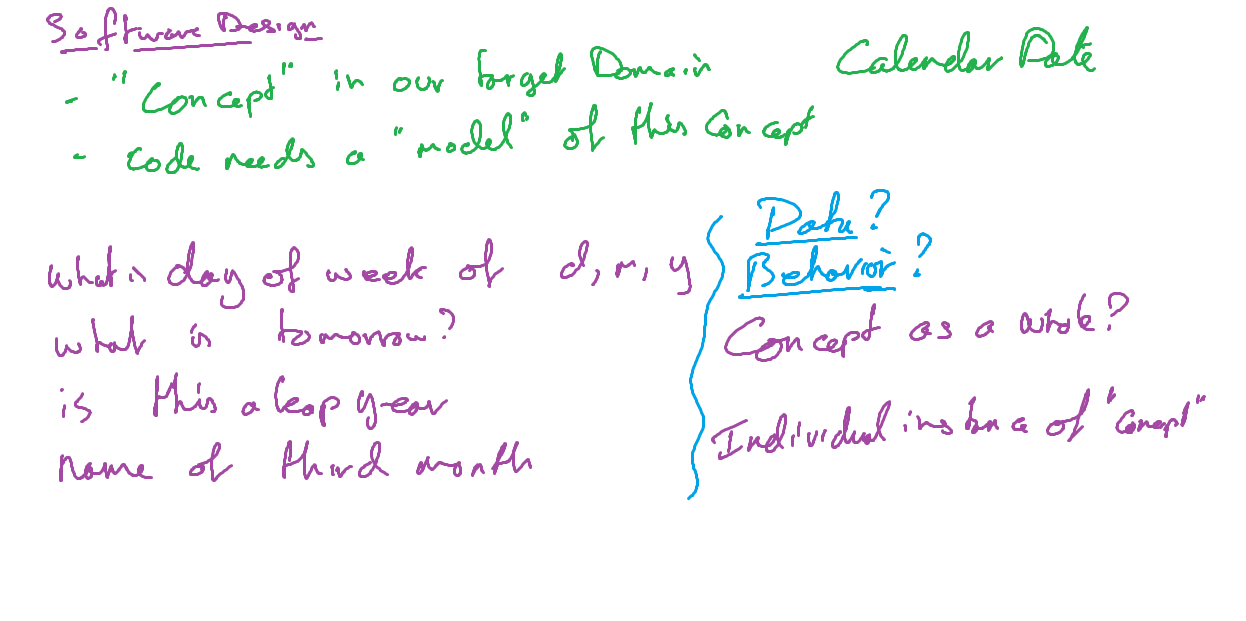 Software Design
- "Concept" in our target Domain
Calendar Date
- code needs a "model" of this Concept
what is day of week of d, m, y
what is tomorrow?
is this a leap year
name of third month
Data?
Behavior?
Concept as a whole?
Individual instance of "concept"